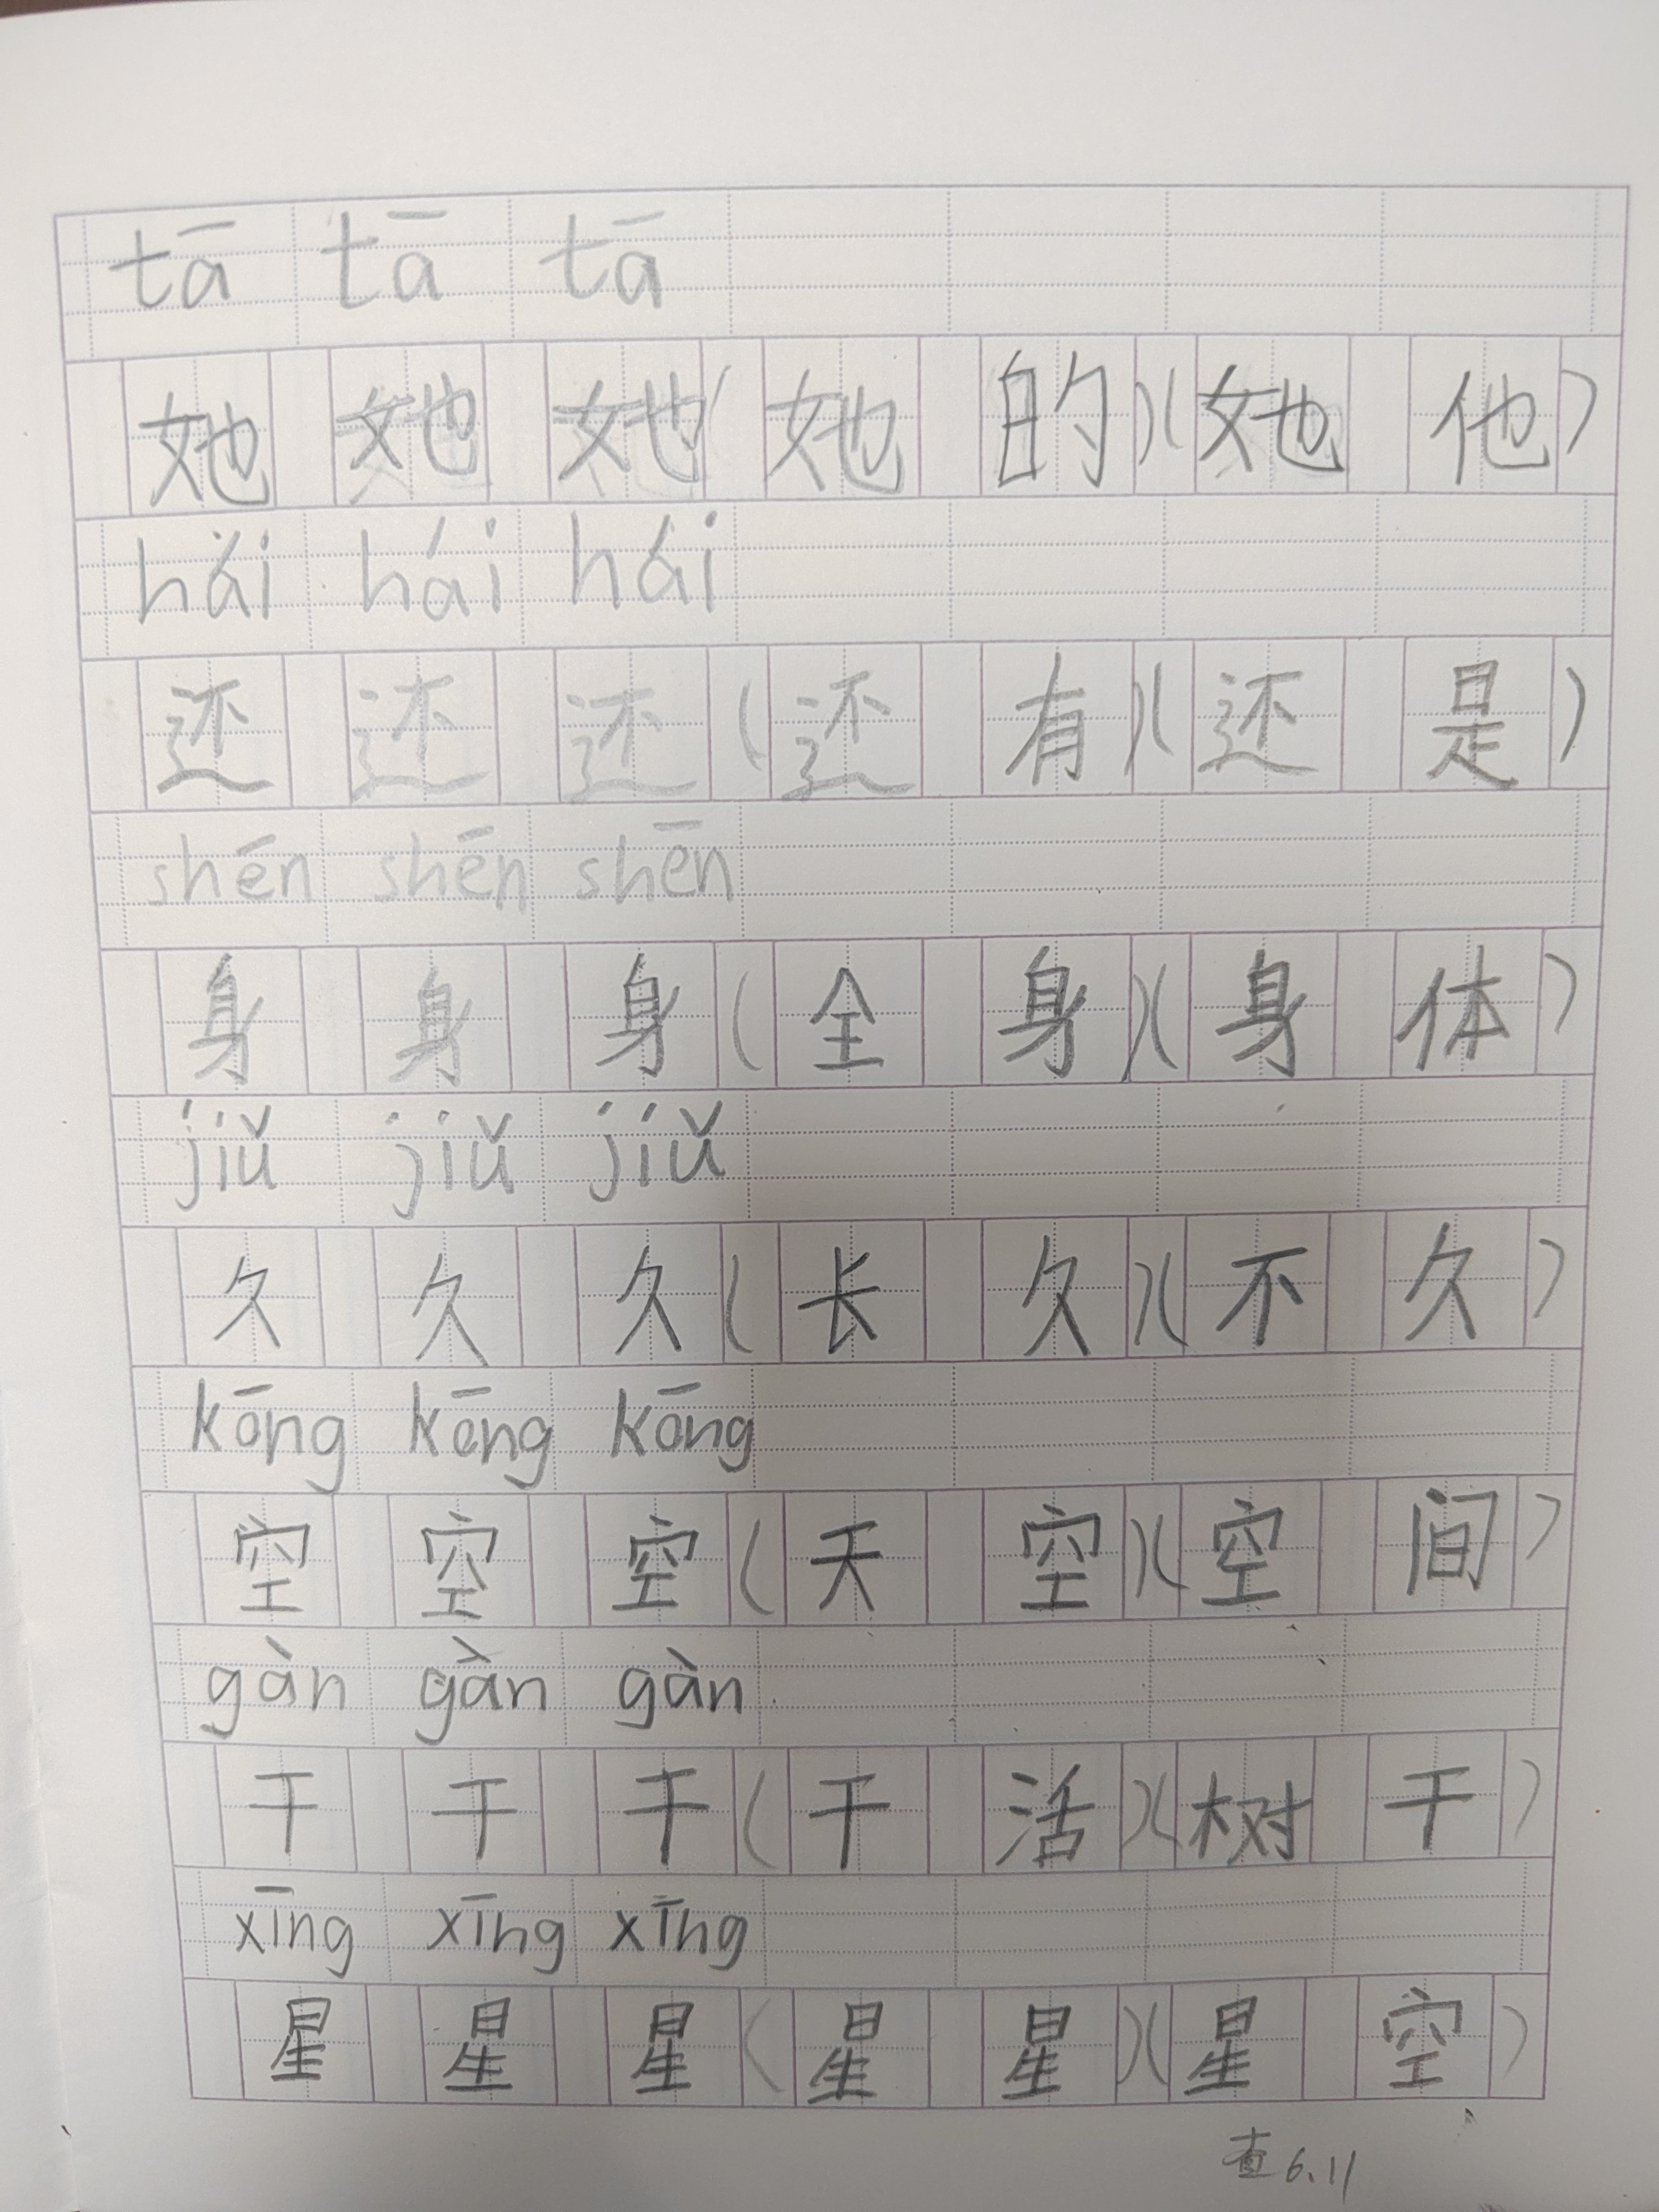 tā tā tā
她 她 她 ( 她 的 ) ( 她 他 )
hái hái hái
还 还 还 ( 还 有 ) ( 还 是 )
shēn shēn shēn
身 身 身 ( 全 身 ) ( 身 体 )
jiǔ jiǔ jiǔ
久 久 久 ( 长 久 ) ( 不 久 )
kōng kōng kōng
空 空 空 ( 天 空 ) ( 空 间 )
gàn gàn gàn
干 干 干 ( 干 活 ) ( 树 干 )
xīng xīng xīng
星 星 星 ( 星 星 ) ( 星 空 )
查 6.11